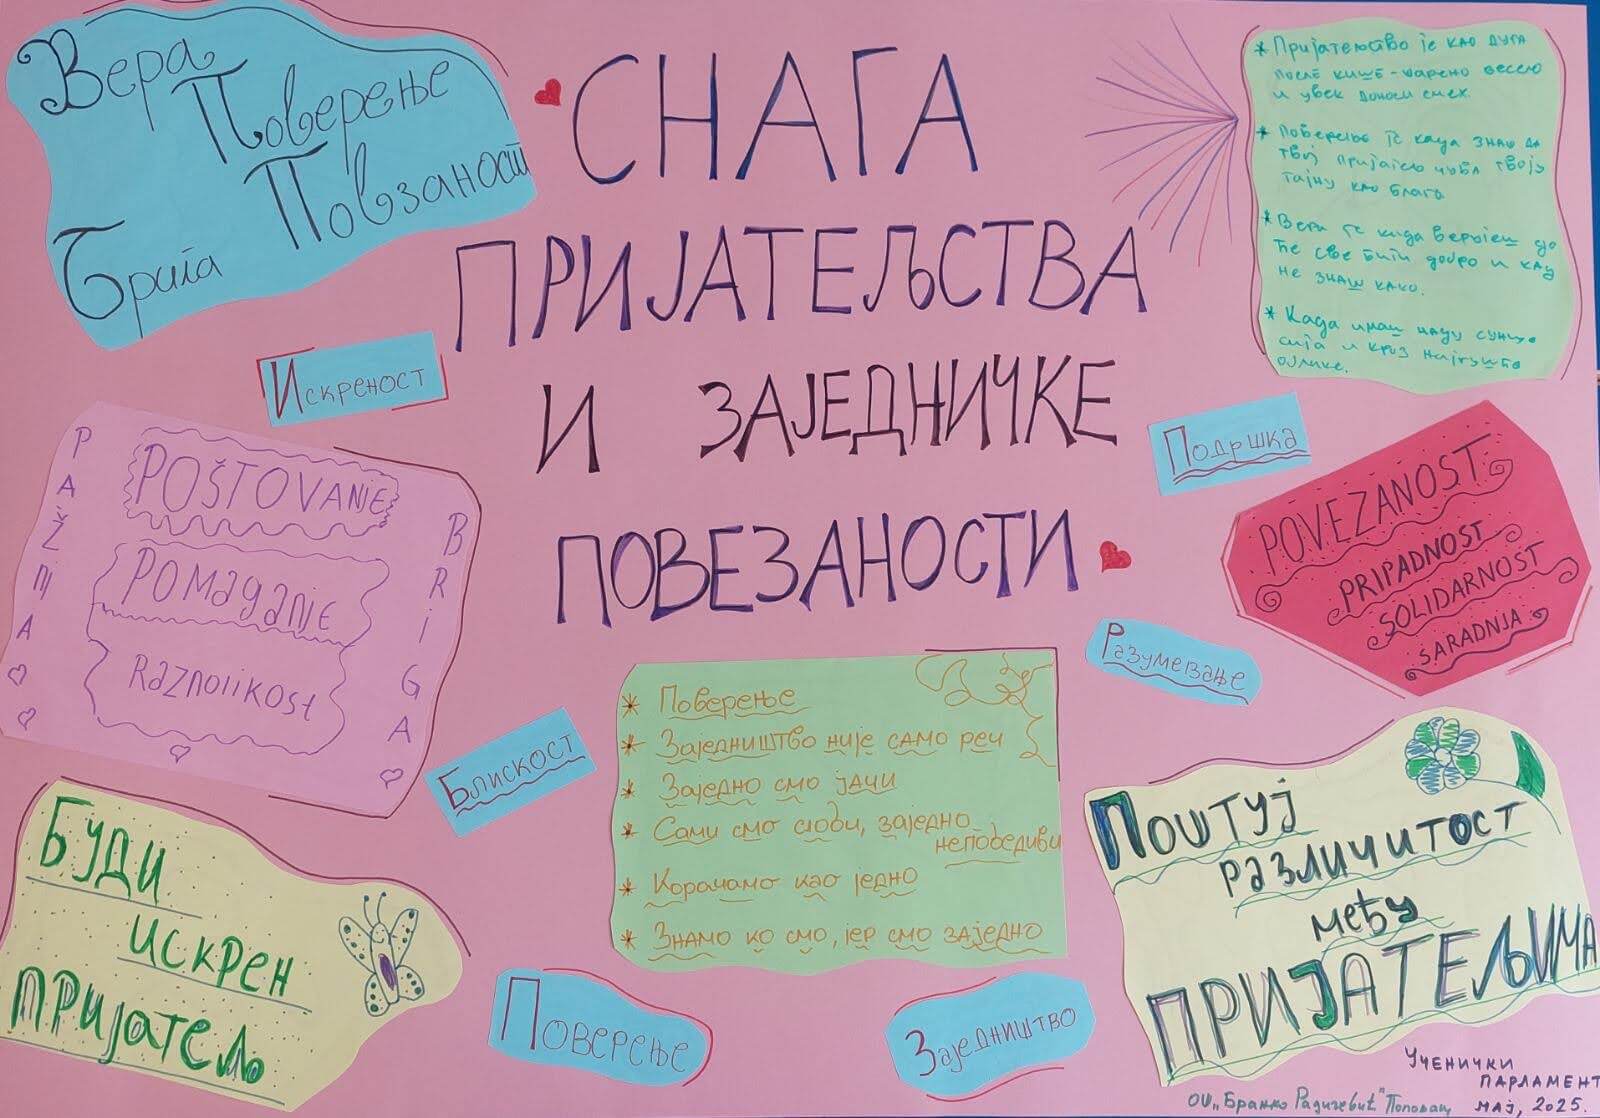 Вера
Поверење
Повзаност
Брига
СНАГА
ПРИЈАТЕЉСТВА
И ЗАЈЕДНИЧКЕ
ПОВЕЗАНОСТИ
* Пријатељство је као дуга
после кише - шарено весело
и увек доноси смех.
* Поверење је када знаш да
твој пријатељ чува твоју
тајну као благо
* Вера је када верујеш да
ће све бити добро и кад
не знаш како.
* Када имаш наду сунце
сија и кроз најгушће
облаке.
Искреност
Подршка
PAŽNJA
POŠTOVANJE
POMAGANJE
RAZNOLIKOST
BRIGA
POVEZANOST
PRIPADNOST
SOLIDARNOST
SARADNJA
Разумевање
Блискост
* Поверење
* Заједништво није само реч
* Заједно смо јачи
* Сами смо слаби, заједно
непобедиви
* Корачамо као једно
* Знамо ко смо, јер смо заједно
Буди
искрен
пријатељ
Поштуј
различитост
међу
ПРИЈАТЕЉИМА
Поверење
Заједништво
Ученички
парламент
мај, 2025.
ОШ „Бранко Радичевић" Поповац